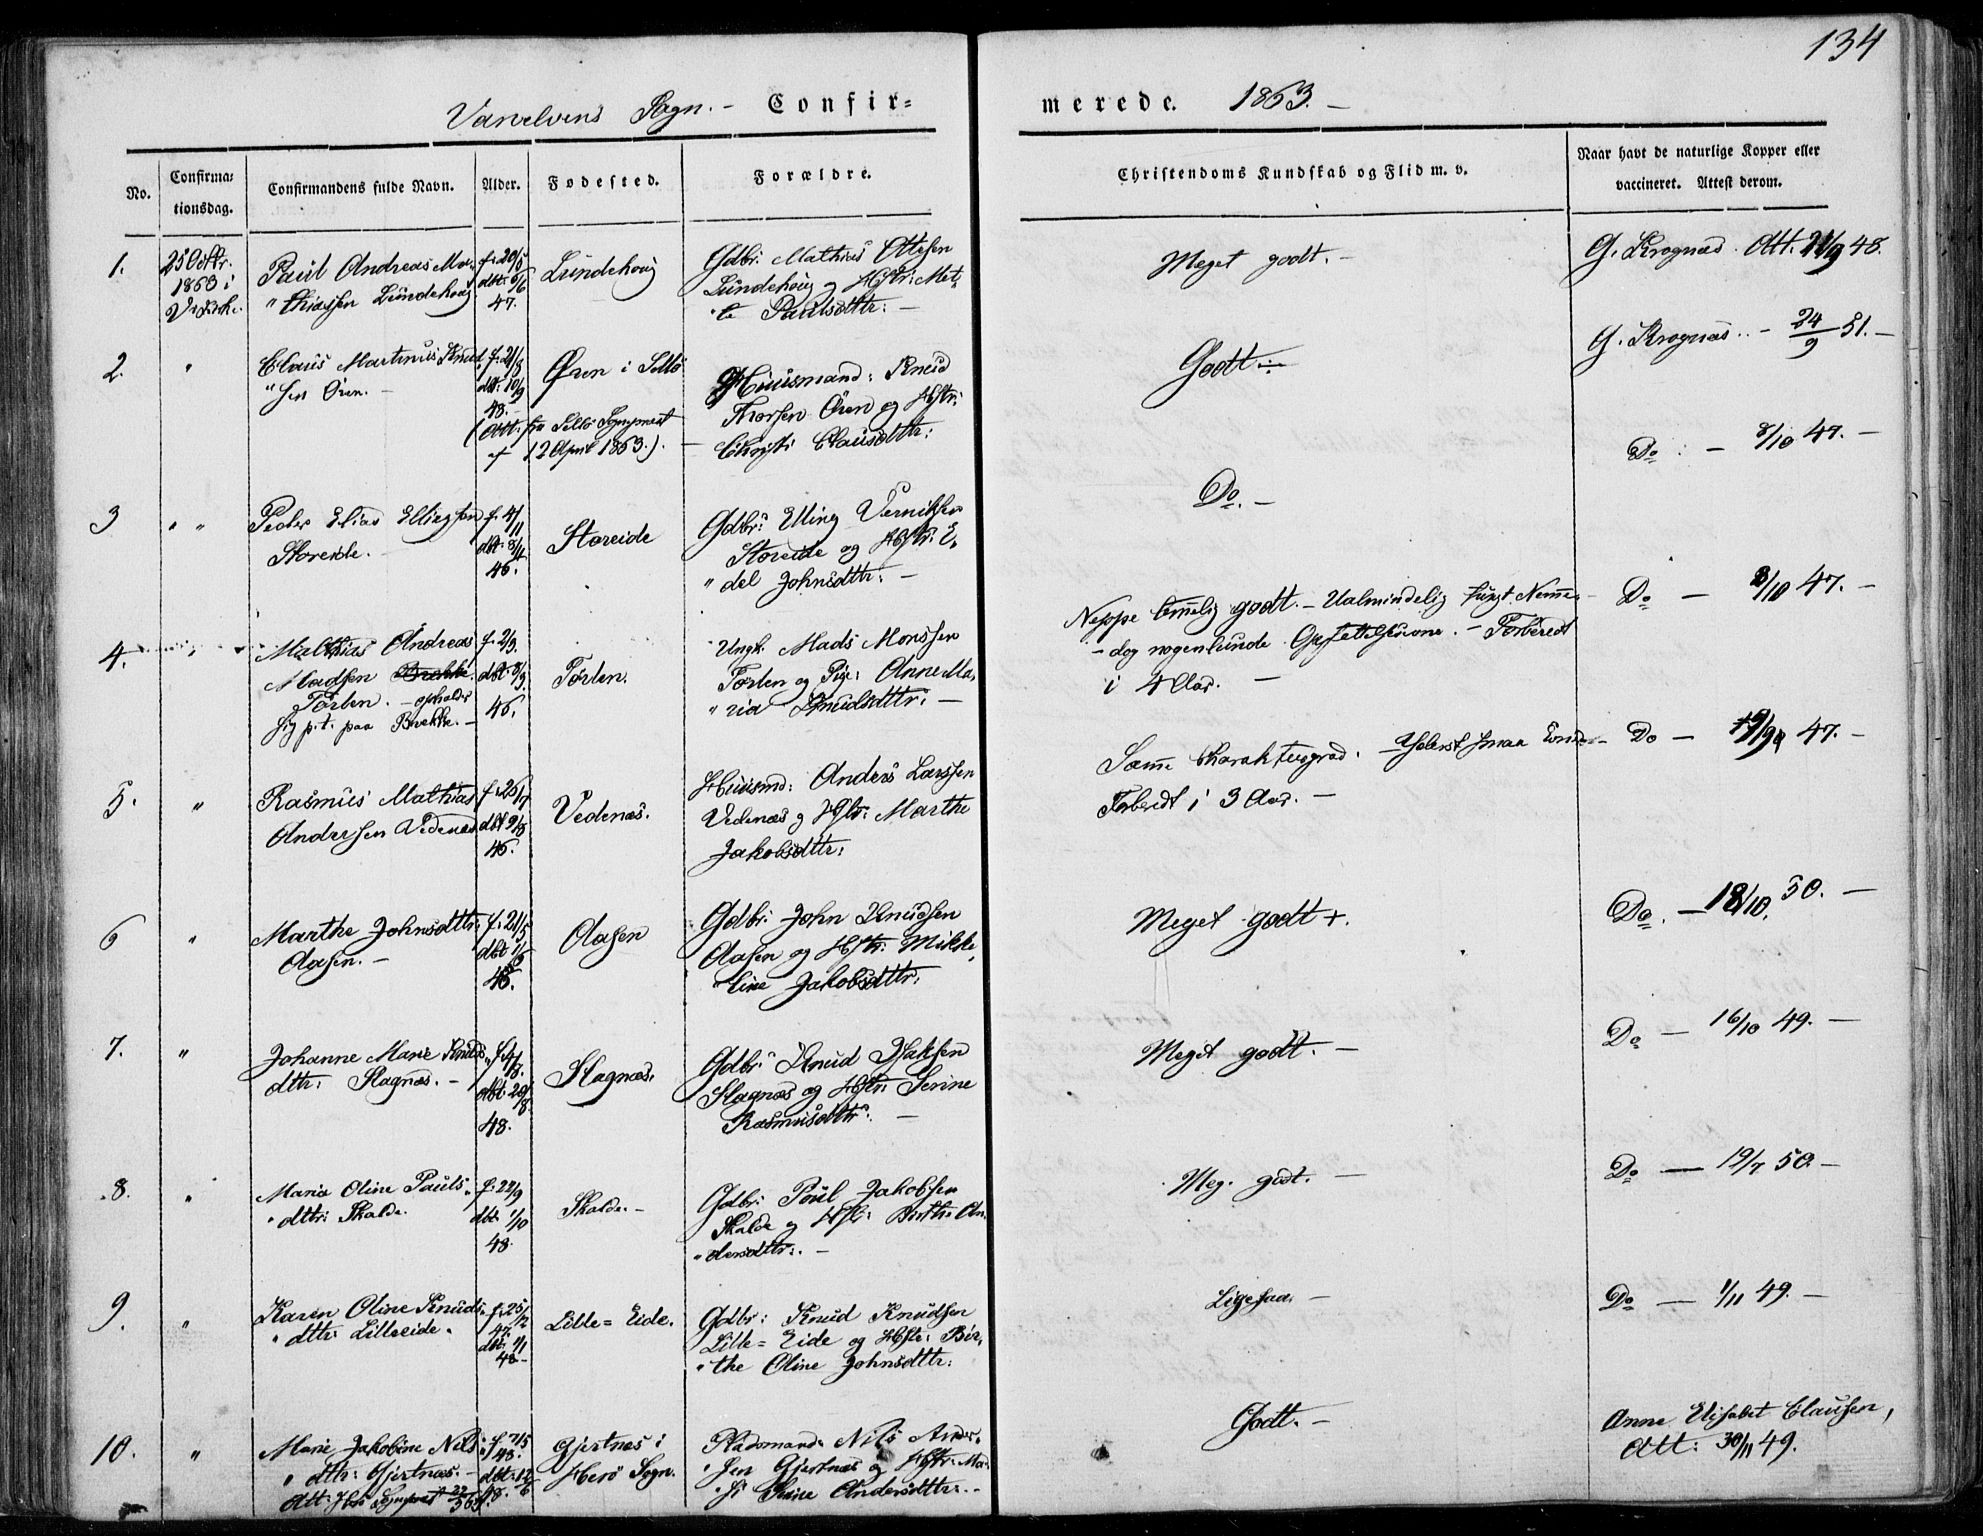 134
Vanelvens Sogn. - Confir=
merede. 1863. -
No.
Confirma=
tionsdag.
Confirmandens fulde Navn.
Alder.
Fødested.
Forældre.
Christendoms Kundskab og Flid m. v.
Naar havt de naturlige Kopper eller
vaccineret. Attest derom.
1.
25 Octbr.
1863 i
V. Kirke.
Paul Andreas Ma-
"thiassen Lundehoug
f. 20/5
dbt. 6/6
47.
Lundehoug
Gdbr: Mathias Ottesen
Lundehoug og Hstr: Met,
"te Paulsdttr: -
Meget godt. -
G. Krognæs. Att. 21/9 48.
2.
"
Claus Martinus Knud,
"sen Øren. -
f. 21/8
dbt. 10/9
48.
Øren i Selløe
(Att. fra Sellø Sognepræst
af 12 April 1863.)
Huusmand: Knud
Thorsen Øren og Hstr:
Christi Clausdttr:
Godt
G. Krognæs. - 24/9 51. -
3
" "
Peder Elias Ellingsen
Storeide.
f. 4/11
dbt. 8/11
46.
Storeide
Gdbr: Elling Verniksen
Storeide og Hstr: E,
"del Johnsdttr: -
Do. -
Do - 8/10 47. -
4.
"
Mathias Andreas
Madsen Brekke
Førlen. - opholder
sig p.t. paa Brekke. -
f. 2/3.
dbt. 8/3.
46.
Førlen.
Ungk. Mads Monssen
Førlen og Pige: Anne Ma,
"ria Knudsdttr: -
Neppe temmelig godt. - Ualmindelig tungt Nemme
- dog nogenlunde Opfattelsesevne. - Forberedt
i 4 Aar. -
Do - 8/10 47. -
5.
"
Rasmus Mathias
Andersen Vedenæs
f. 26/7
dbt 9/8
46.
Vedenæs.
Huusmd: Anders Larssen
Vedenæs og Hstr: Marthe
Jakobsdttr:
Samme Charakteersgrad. - Yderst smaa Evner
Forberedt i 3 Aar. -
Do - 19/9 47. -
6
"
Marthe Johnsdttr:
Aasen. -
f. 21/5
dbt 1/6
48.
Aasen
Gdbr: John Knudsen
Aasen og Hstr: Mikke,
"line Jakobsdttr:
Meget godt +.
Do. - 18/10. 50. -
7.
"
Johanne Marie Knuds,
dttr: Slagnæs. -
f. 4/8.
dbt. 20/8
48.
Slagnæs.
Gdbr: Knud Isaksen
Slagnæs og Hstr: Serine
Rasmusdttr: -
Meget godt. -
Do - 16/10 49. -
8.
"
Maria Oline Pauls,
"dttr: Skalde.
f. 22/9
dbt. 1/10
48.
Skalde. -
Gdbr: Poul Jakobsen
Skalde og Hstr: Berthe An,
"dersdttr: -
Meg. godt. -
Do - 19/7 50. -
9.
"
Karen Oline Knuds,
"dttr: Lilleeide.
f. 25/12
47.
dbt. 1/1
48-
Lille=Eide.
Gdbr: Knud Knudsen
Lille=Eide og Hstr: Ber,
"the Oline Johnsdttr:
Ligesaa. -
Do - 1/11 49. -
10.
"
Marie Jakobine Nils,
"dttr: Gjertnæs. -
Att. Herø Sognepræst 22/5 63.
f. 21/5
48.
dbt. 12/6
48.
Gjertnæs i
Herø Sogn.
Pladsmand: Nils Ander,
"sen Gjertnæs og Hstr: Ma,
Serine Andersdttr: -
Godt. -
Anne Elisabet Clausen,
Att: 30/11 49.